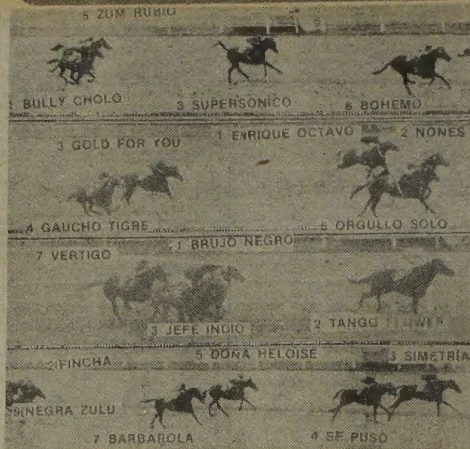 5 ZUM RUBIO
1 BULLY CHOLO 3 SUPERSONICO 8 BOHEMO
3 GOLD FOR YOU 1 ENRIQUE OCTAVO 2 NONES
4 GAUCHO TIGRE 5 ORGULLO SOLO
7 VERTIGO 1 BRUJO NEGRO
3 JEFE INDIO 2 TANGO
2 FINCHA 5 DOÑA HELOISE 3 SIMETRIA
NEGRA ZULU
7 BARBAROLA 4 SE PUSO